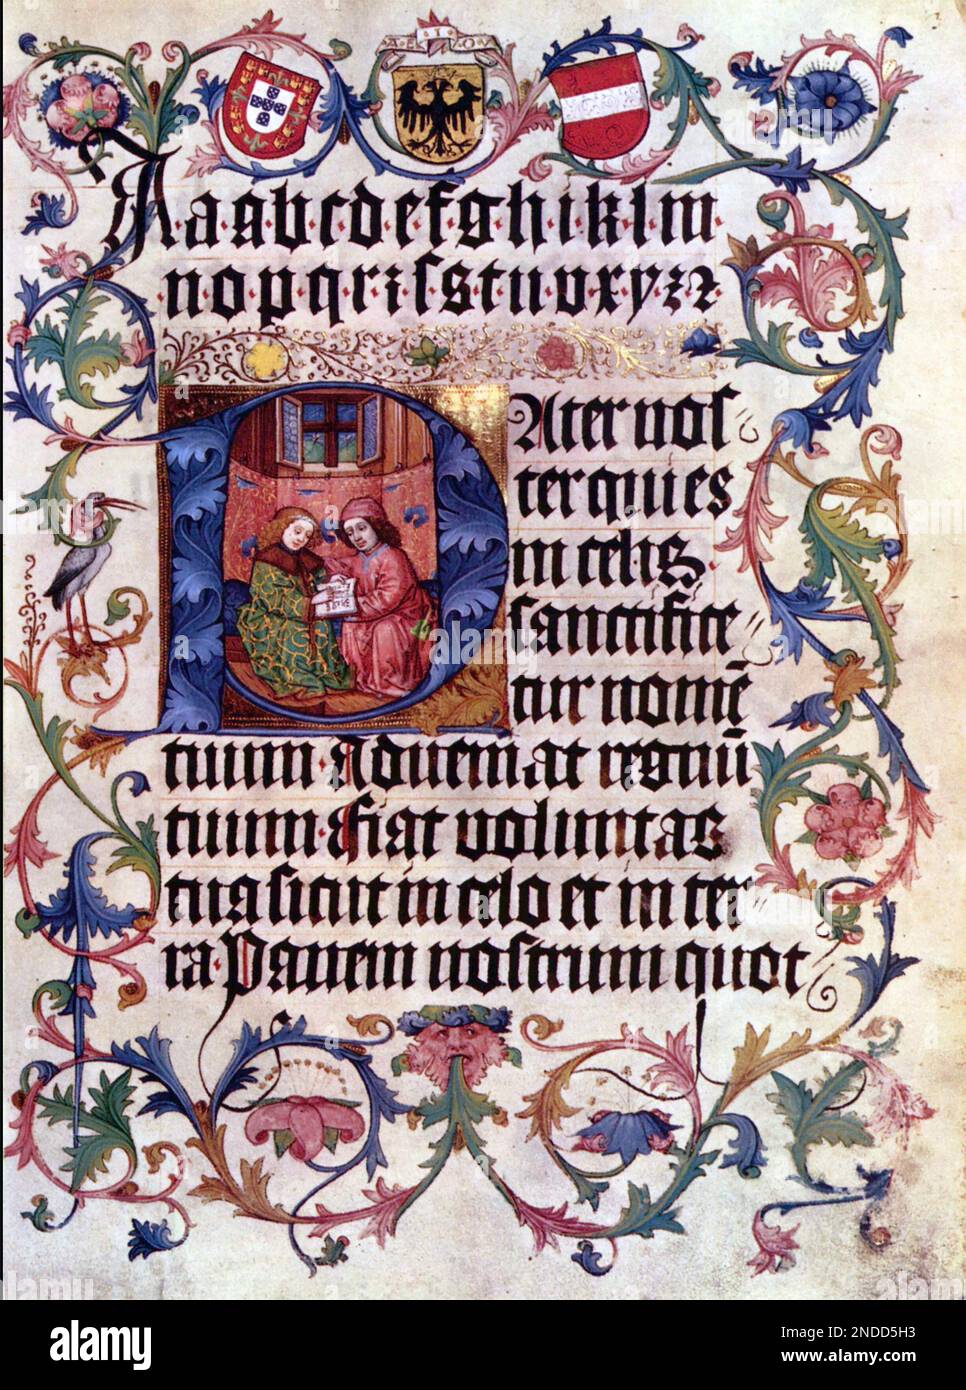 A E I O V
A a a b c d e f g h i k l m
n o p q r ꝛ ſ s t u v x y z ꝛ
PAter noſ
ter qui es
in celis.
ſanctifice
tur nomē
tuum. Adueniat regnū
tuum. Fiat voluntas
tua ſicut in celo et in ter
ra. Panem noſtrum quot
alamy
Image ID: 2NDD5H3
www.alamy.com